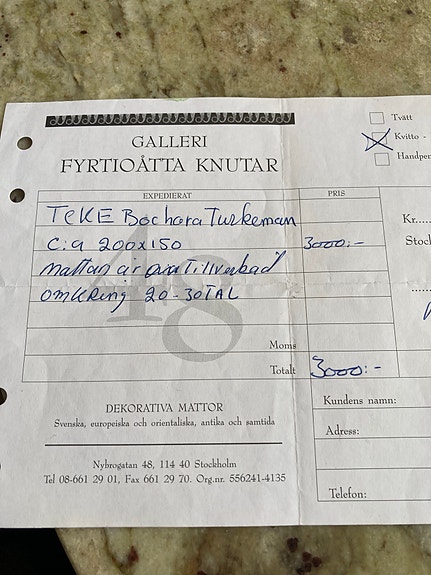 GALLERI
FYRTIOÅTTA KNUTAR
Tvätt
Kvitto -
Handpen
EXPEDIERAT PRIS
TEKE Bochara Turkeman
C:a 200x150 3000:-
mattan är tillverkad
omkring 20-30TAL
48
Kr.
Stock
Moms
Totalt 3000:-
DEKORATIVA MATTOR
Svenska, europeiska och orientaliska, antika och samtida
Nybrogatan 48, 114 40 Stockholm
Tel 08-661 29 01, Fax 661 29 70. Org.nr. 556241-4135
Kundens namn:
Adress:
Telefon: